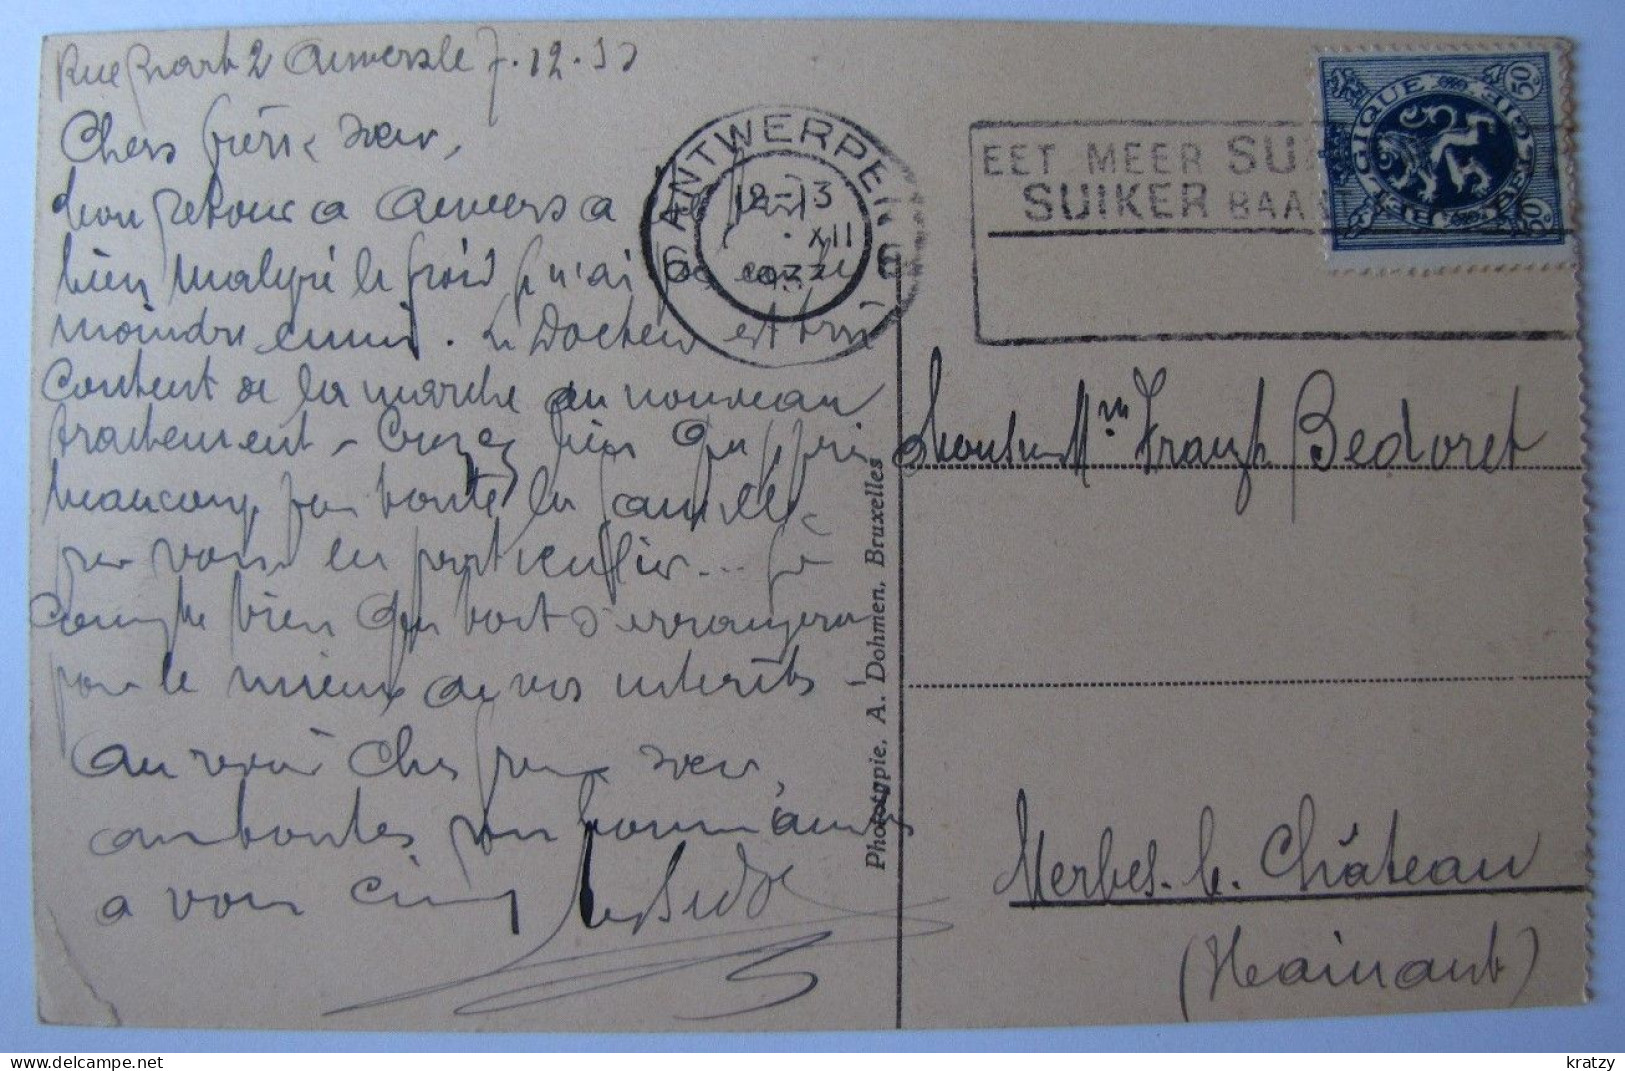 2 Anvers le 7.12.33
Chers frère & sœur,
Mon retour a Anvers a
bien malgré le froid je n'ai pas eu le
moindre ennui. Le Docteur est très
content de la marche du nouveau
traitement - Croyez bien que
beaucoup pour toute la famille
par vous en particulier... Je
compte bien que tout s'arrangera
pour le mieux de vos intérêts
au revoir Chers frère & sœur,
a vous cinq
ANTWERPEN
6 6
12-13
XII
1933
EET MEER
SUIKER BAA
BELGIQUE BELGIE
50 50
Phototypie. A. Dohmen. Bruxelles
Monsieur Mm Franz Bedoret
Merbes-le-Château
(Hainaut)
kratzy